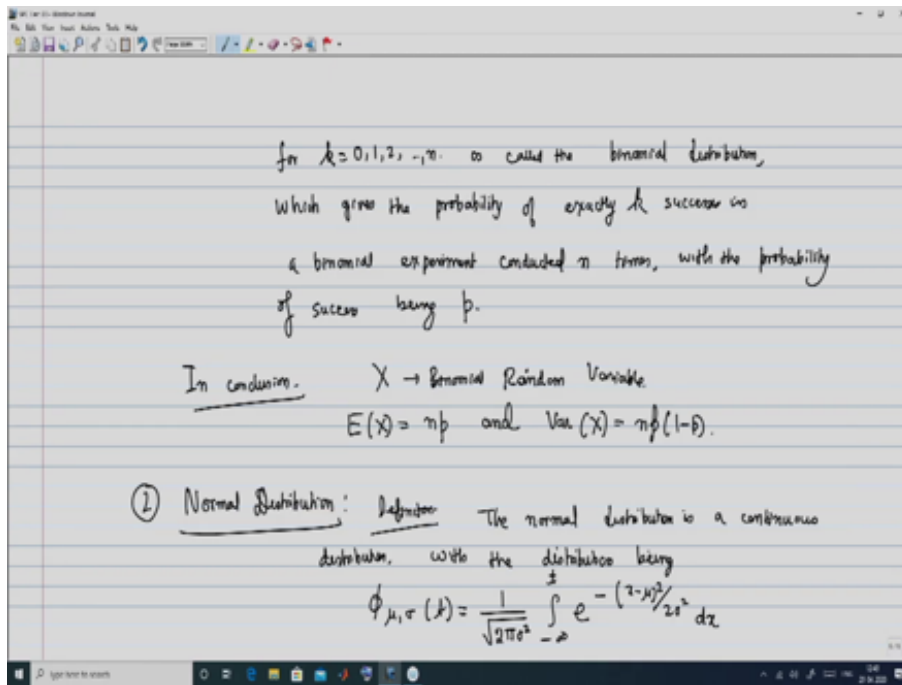 for k=0,1,2, -,n. is called the binomial distribution,
which gives the probability of exactly k success in
a binomial experiment conducted n times, with the probability
of success being p.
In conclusion. X → Binomial Random Variable
E(X) = np and Var (X) = np(1-p).
② Normal Distribution: Definition The normal distribution is a continuous
distribution, with the distribution being
ϕ μ,σ (t) = 1/√2πσ² ∫ -∞ t e^-(x-μ)²/2σ² dx
Type here to search